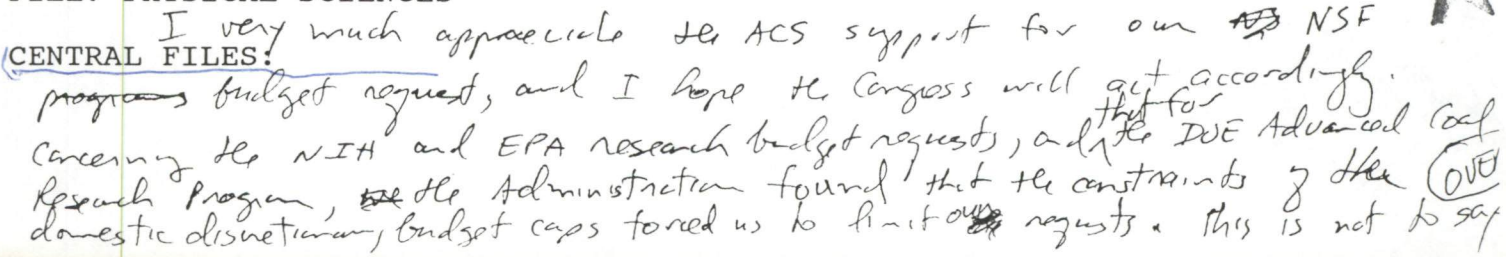 I very much appreciate the ACS support for our NSF
CENTRAL FILES:
programs budget request, and I hope the Congress will act accordingly.
that for
Concerning the NIH and EPA research budget requests, and the DOE Advanced Coal
Research Program, the Administration found that the constraints of the OVER
domestic discretionary budget caps forced us to limit our requests. This is not to say